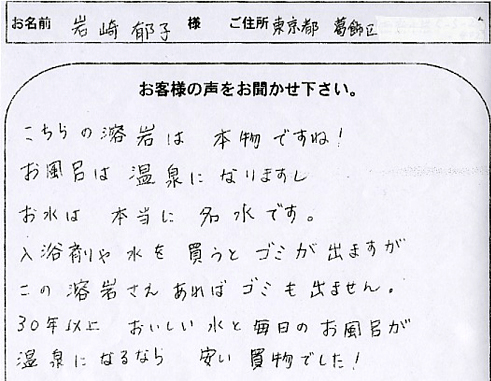 お名前 岩崎 郁子 様 ご住所 東京都 葛飾区
お客様の声をお聞かせ下さい。
こちらの溶岩は 本物ですね!
お風呂は 温泉に なりますし
お水は 本当に 名水です。
入浴剤や 水を 買うと ゴミが 出ますが
この 溶岩さえ あれば ゴミも 出ません。
30年以上 おいしい 水と 毎日の お風呂が
温泉になるなら 安い 買物でした!